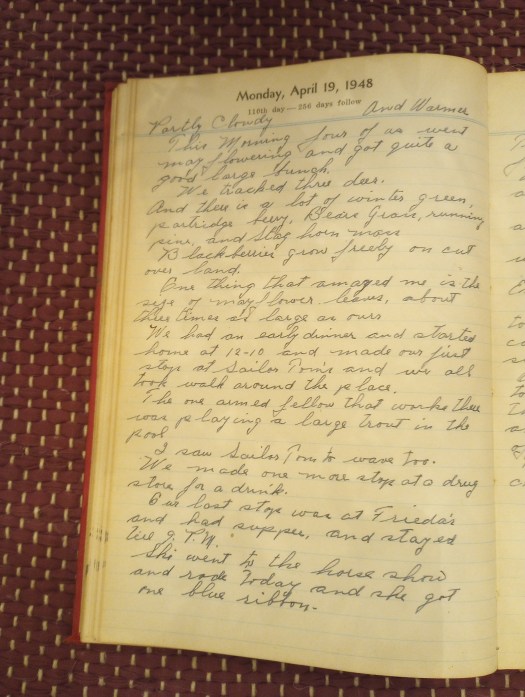 Monday, April 19, 1948
110th day—256 days follow
Partly Cloudy And Warmer
This Morning four of us went
mayflowering and got quite a
good large bunch.
We tracked three deer.
And there is a lot of winter green,
partridge berry, Bears Grass, running
pine, and Stag horn moss
Blackberries grow freely on cut
over land.
One thing that amazed me is the
size of mayflower leaves, about
three times as large as ours
We had an early dinner and started
home at 12-10 and made our first
stop at Sailor Tom's and we all
took walk around the place.
The one armed fellow that works there
was playing a large trout in the
pool
I saw Sailor Tom to wave too.
We made one more stop at a drug
store for a drink.
Our last stop was at Frieda's
and had supper, and stayed
till 9. P.M.
She went to the horse show
and rode today and she got
one blue ribbon.